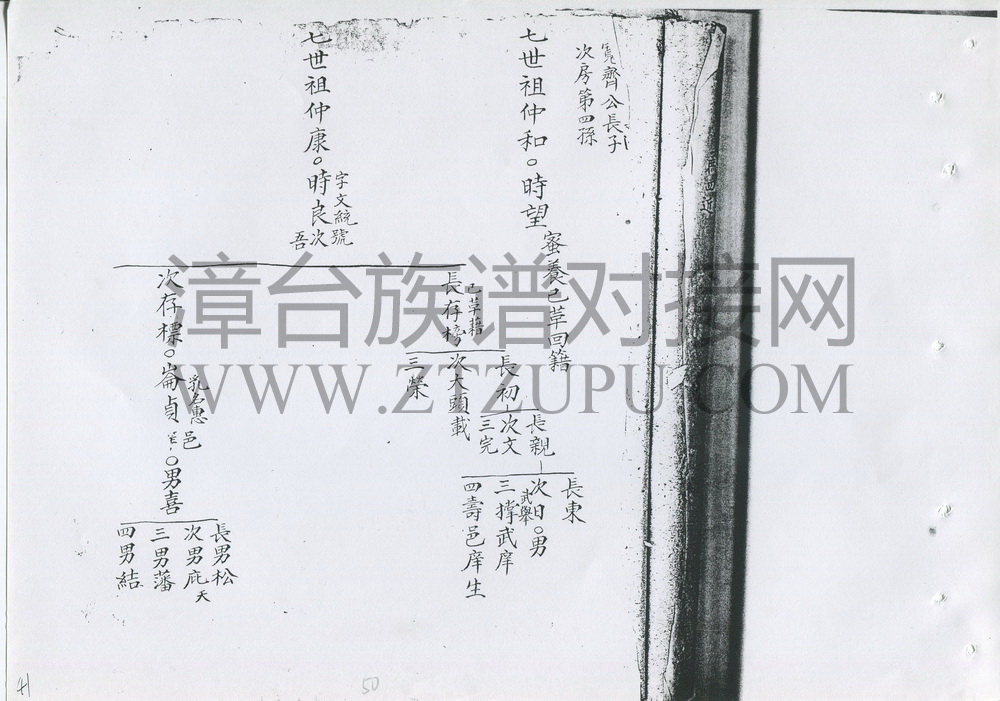 齊公長子
次房第四孫
七世祖仲和。時望
蜜養己草回籍
七世祖仲康。時良
字文統號
次吾
長存榜
己草藉
長初
長親
長東
次日。男
武舉
三撑武庠
四壽邑庠生
次文
三完
次大頭載
三榮
次存標。崙貞
乳名惠邑
。男喜
長男松
次男庇天
三男藩
四男結
漳台族谱对接网
WWW.ZTZUPU.COM
50